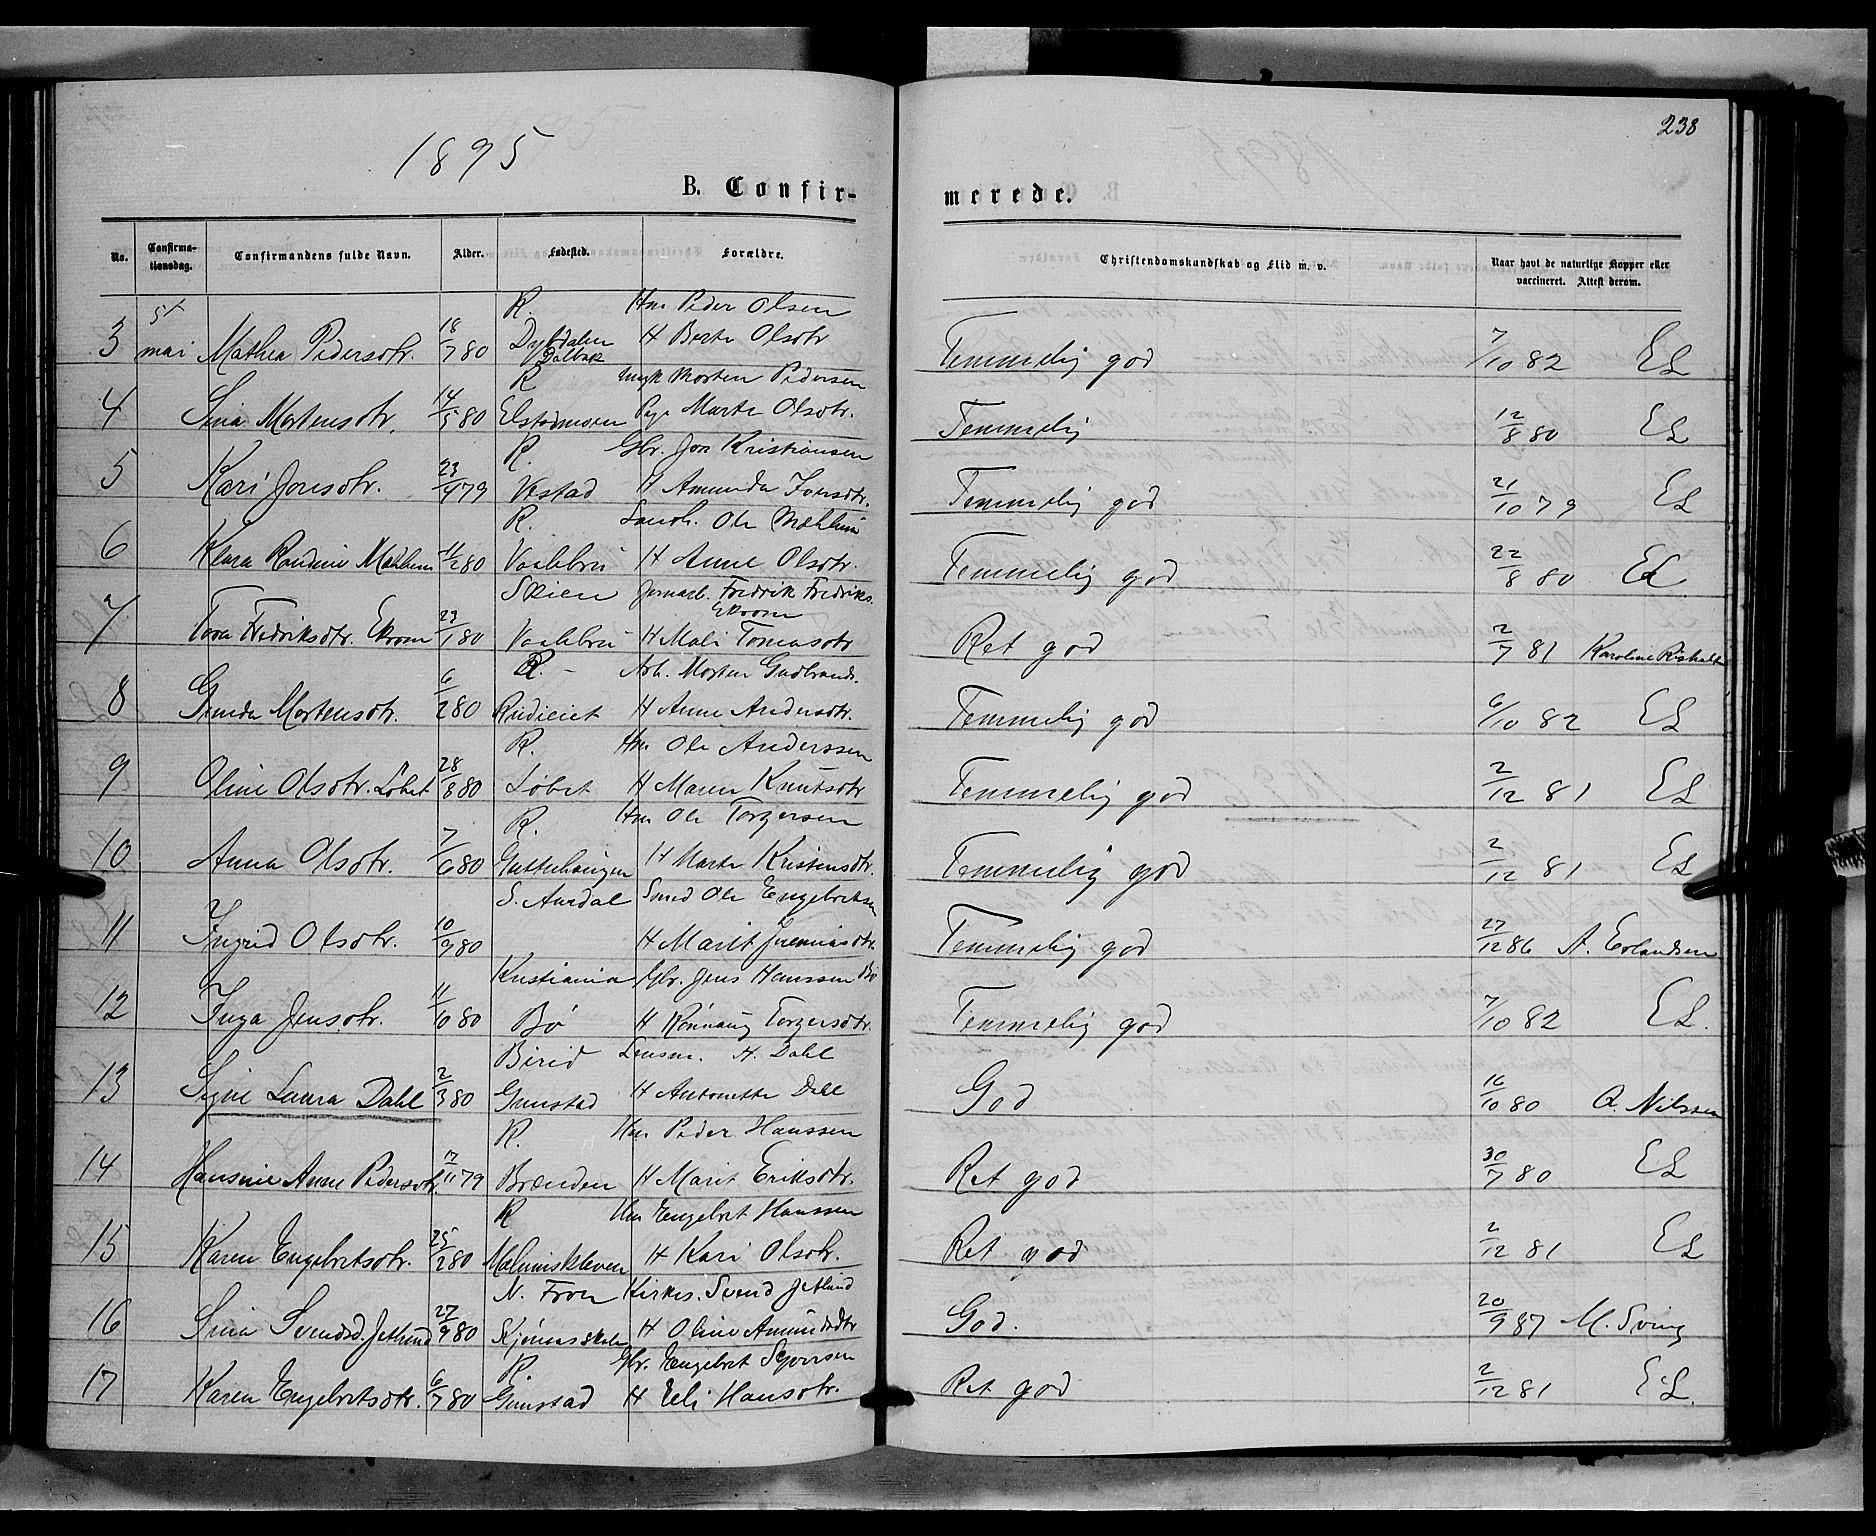 238
1895
B. Confir- merede.
No. Confirma- tionsdag. Confirmandens fulde Navn. Alder. Fødested. Forældre. Christendomskundskab og Flid m. v. Naar havt de naturlige Kopper eller vaccineret. Attest derom.
R. Hm Peder Olsen
3 5t mai Mathea Pedersdtr. 18/7 80 H Berte Olsdtr Temmelig god 7/10 82 EL
R Morten Pedersen
4 Sina Mortensdtr. 14/5 80 Elstadmoen Pige Marte Olsdtr. Temmelig 12/8 80 EL
R. Gbr. Jon Kristiansen
5 Kari Jonsdtr. 23/4 79 Vestad H Amunda Iversdtr. Temmelig god 21/10 79 EL
R. Landh. Ole Mæhlum
6 Klara Randine Mæhlum 11/2 80 Vaalebru H Anne Olsdtr. Temmelig god 22/8 80 EL
Skien Jernarb. Fredrik Fredriks. Ekrom
7 Tora Fredriksdtr. Ekrom 23/1 80 Vaalebru H Mali Tomasdtr Ret god 2/7 81 Karoline
R. Arb. Morten Gudbrands.
8 Gunda Mortensdtr. 6/2 80 Rudieiet H Anne Andersdtr. Temmelig god 6/10 82 EL
R. Hm Ole Anderssen
9 Oline Olsdtr. Løbet 28/8 80 Løbet H Maren Knutsdtr Temmelig god 2/12 81 EL
R. Hm Ole Torgersen
10 Anna Olsdtr. 7/6 80 H Marte Kristensdtr. Temmelig god 2/12 81 EL
S. Aurdal Smed Ole Engebretsen
11 Ingrid Olsdtr. 10/9 80 H Marit Jeremiasdtr. Temmelig god 27/12 86 A. Erlandsen
Kristiania Gbr. Jens Hanssen Bø
12 Inga Jensdtr. 11/10 80 Bø H Rønnaug Torgersdtr. Temmelig god 7/10 82 EL.
Birid Lensm. H. Dahl
13 Signe Laura Dahl 2/3 80 Grunstad H Antonette Dahl God 16/10 80 O. Nilssen
R. Hm Peder Hanssen
14 Hansine Anne Pedersdtr. 17/11 79 Brænden H Marit Eriksdtr. Ret god 30/7 80 EL
R Hm Engebret Hanssen
15 Karen Engebretsdtr. 25/2 80 Mælumskleven H Kari Olsdtr. Ret god 2/12 81 EL
N. Fron Kirkes. Svend Jetlund
16 Sina Svendsd. Jetlund 27/9 80 H Oline Amundsdtr God. 20/9 87 M. Sving
R. Gbr. Engebret Syversen
17 Karen Engebretsdtr. 6/7 80 Grunstad H Eli Hansdtr. Ret god 2/12 81 EL.